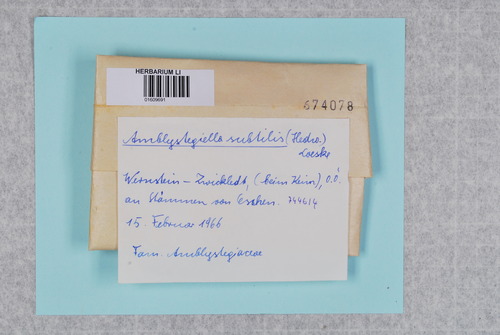 HERBARIUM LI
01609691
674078
Amblystegiella subtilis (Hedw.)
Loeske
Wernstein – Zwickledt, (beim Kubin), O.Ö.
an Stämmen von Eschen. 7446/4
15. Februar 1966
Fam. Amblystegiaceae